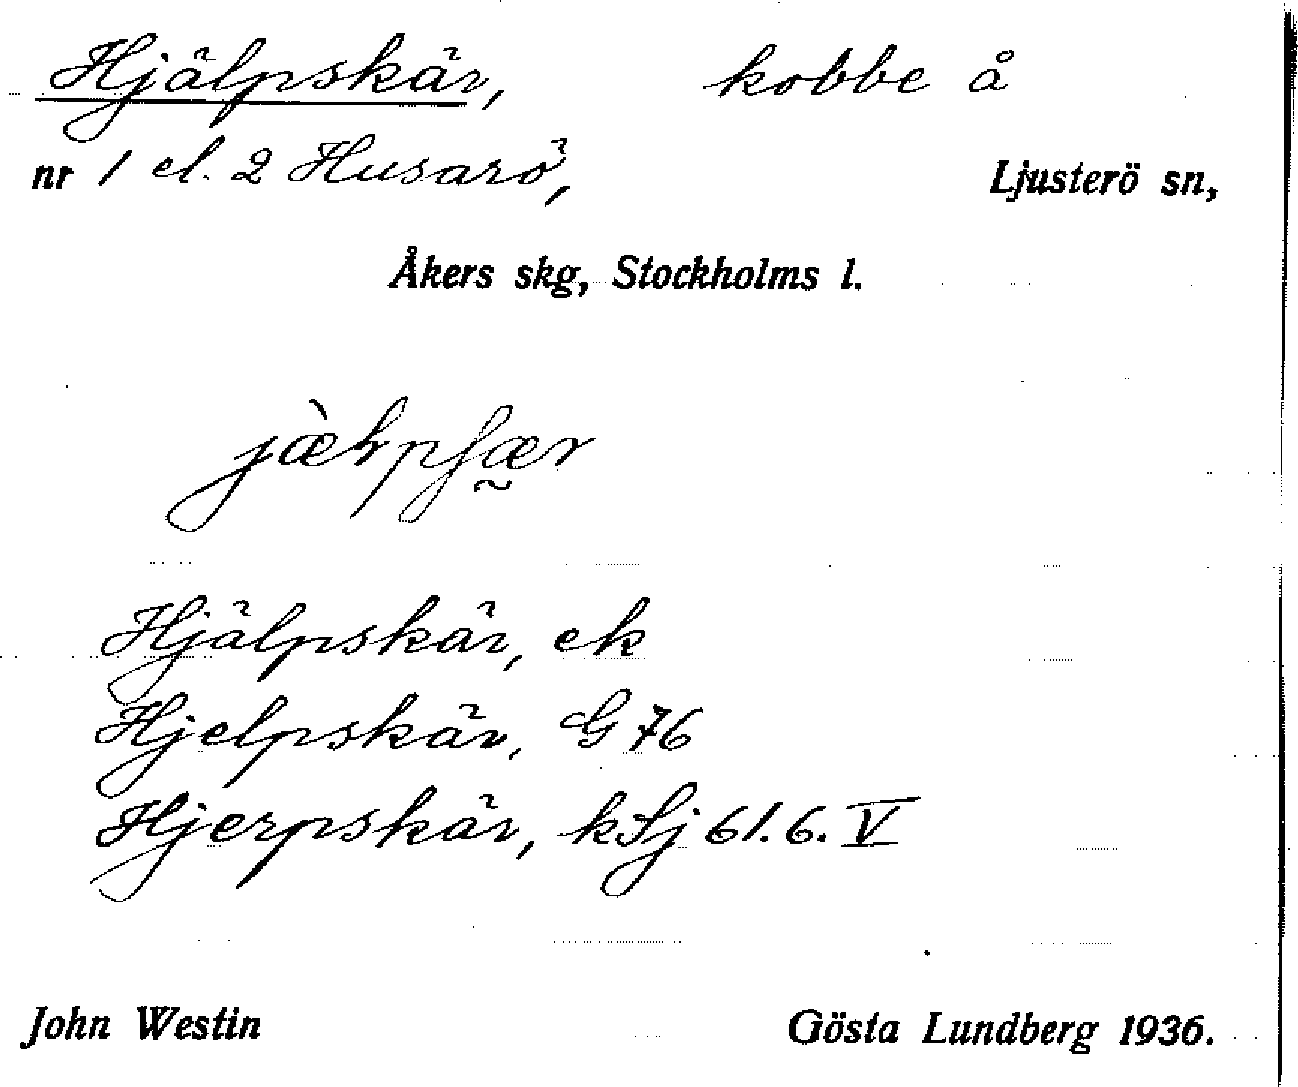 Hjälpskär, kobbe å
nr 1 el. 2 Husarö, Ljusterö sn,
Åkers skg, Stockholms l.
Hjälpskär, ek
Hjelpskär, G 76
Hjerpskär, kSj 61.6.V
John Westin Gösta Lundberg 1936.